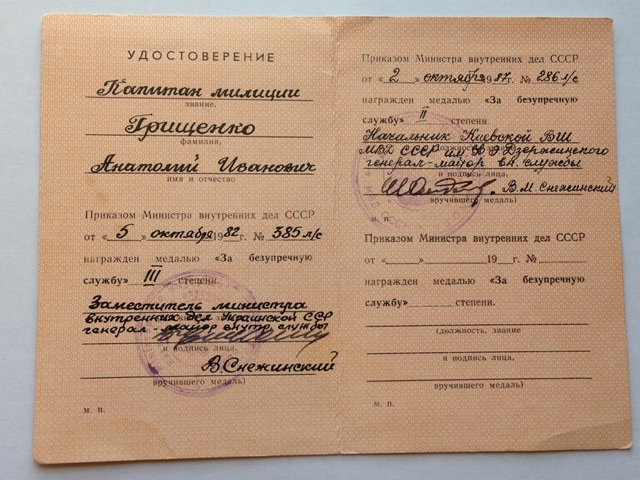 УДОСТОВЕРЕНИЕ
Капитан милиции
звание,
Грищенко
фамилия,
Анатолий Иванович
имя и отчество
Приказом Министра внутренних дел СССР
от «5» октября 1982 г. № 385 л/с
награжден медалью «За безупречную
службу» III степени.
Заместитель министра
внутренних дел Украинской ССР
генерал-майор внутр службы
и подпись лица,
В.Снежинский
вручившего медаль)
м. п.
Приказом Министра внутренних дел СССР
от «2» октября 1987 г. № 286 л/с
награжден медалью «За безупречную
службу» II степени.
Начальник Киевской ВШ
МВД СССР им Ф Э Дзержинского
генерал-майор вн. службы
и подпись лица,
В.М.Снежинский
вручившего медаль)
м. п.
Приказом Министра внутренних дел СССР
от «____»____________19___г. №________
награжден медалью «За безупречную
службу»________степени.
(должность, звание
и подпись лица,
вручившего медаль)
м. п.